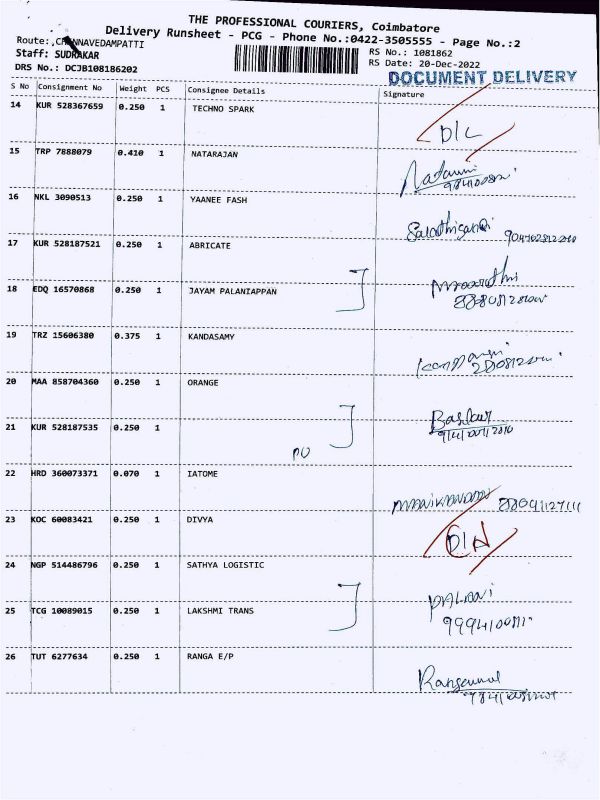 THE PROFESSIONAL COURIERS, Coimbatore
Delivery Runsheet - PCG - Phone No.:0422-3505555 - Page No.:2
Route:,CHINNAVEDAMPATTI
RS No.: 1081862
Staff: SUDHAKAR
RS Date: 20-Dec-2022
DRS No.: DCJB108186202
DOCUMENT DELIVERY
S No Consignment No Weight PCS Consignee Details Signature
14 KUR 528367659 0.250 1 TECHNO SPARK
D/L
15 TRP 7888079 0.410 1 NATARAJAN
16 NKL 3090513 0.250 1 YAANEE FASH
17 KUR 528187521 0.250 1 ABRICATE
18 EDQ 16570868 0.250 1 JAYAM PALANIAPPAN
19 TRZ 15606380 0.375 1 KANDASAMY
20 MAA 858704360 0.250 1 ORANGE
21 KUR 528187535 0.250 1
22 HRD 360073371 0.070 1 IATOME
23 KOC 60083421 0.250 1 DIVYA
24 NGP 514486796 0.250 1 SATHYA LOGISTIC
25 TCG 10089015 0.250 1 LAKSHMI TRANS
26 TUT 6277634 0.250 1 RANGA E/P